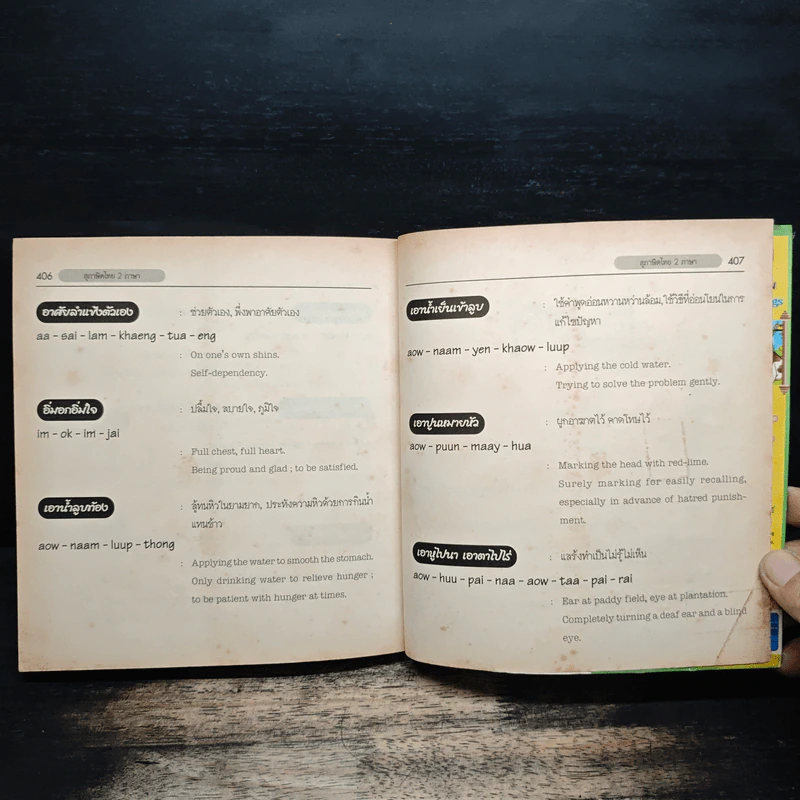 406
สุภาษิตไทย 2 ภาษา
อาศัยลำแข้งตัวเอง
: ช่วยตัวเอง, พึ่งพาอาศัยตัวเอง
aa – sai – lam – khaeng – tua – eng
: On one's own shins.
Self-dependency.
อิ่มอกอิ่มใจ
: ปลื้มใจ, สบายใจ, ภูมิใจ
im – ok – im – jai
: Full chest, full heart.
Being proud and glad ; to be satisfied.
เอาน้ำลูบท้อง
: สู้ทนหิวในยามยาก, ประทังความหิวด้วยการกินน้ำ
แทนข้าว
aow – naam – luup – thong
: Applying the water to smooth the stomach.
Only drinking water to relieve hunger ;
to be patient with hunger at times.
สุภาษิตไทย 2 ภาษา
407
เอาน้ำเย็นเข้าลูบ
: ใช้คำพูดอ่อนหวานหว่านล้อม,ใช้วิธีที่อ่อนโยนในการ
แก้ไขปัญหา
aow – naam – yen – khaow – luup
: Applying the cold water.
Trying to solve the problem gently.
เอาปูนหมายหัว
: ผูกอาฆาตไว้ คาดโทษไว้
aow – puun – maay – hua
: Marking the head with red-lime.
Surely marking for easily recalling,
especially in advance of hatred punish-
ment.
เอาหูไปนา เอาตาไปไร่
: แสร้งทำเป็นไม่รู้ไม่เห็น
aow – huu – pai – naa – aow – taa – pai – rai
: Ear at paddy field, eye at plantation.
Completely turning a deaf ear and a blind
eye.